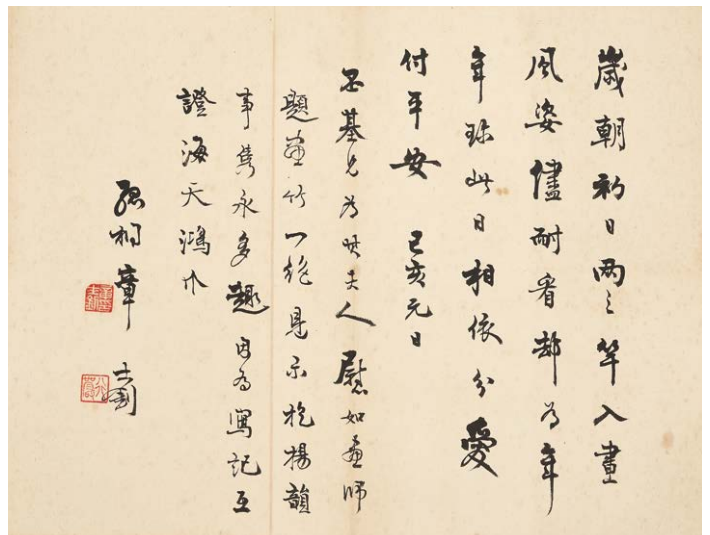 歲朝初日兩三竿入畫
風姿儘耐看却為年
年珍此日相依分愛
付平安 己亥元日
丕基兄為其夫人慰如畫師
題畫竹一絕見示挹揚韻
事雋永多趣因為寫記互
證海天鴻爪
孤桐章士釗